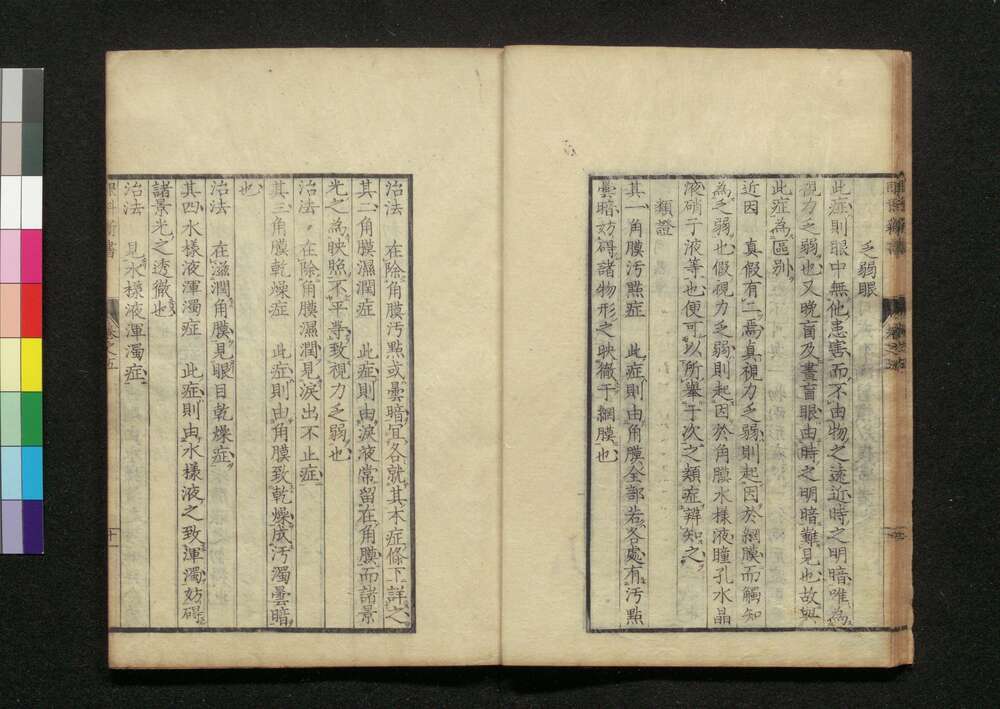 乏弱眼
此症則眼中無他患害而不由物之遠近時之明暗唯為
視力之乏弱也又晩盲及晝盲眼由時之明暗難見也故與
此症為區別
近因 真假有二焉真視力乏弱則起因於網膜而觸知
為乏弱也假視力乏弱則起因於角膜水樣液瞳孔水晶
液硝子液等也便可以所擧于次之類症辨知之
類證
其一角膜汚點症 此症則由角膜全部若各處有汚點
曇暗妨碍諸物形之映徹于網膜也
治法 在除角膜汚點或曇暗宜各就其本症條下詳之
其二角膜濕潤症 此症則由淚液常留在角膜而諸景
光之為映照不平等致視力乏弱也
治法 在除角膜濕潤見淚出不止症
其三角膜乾燥症 此症則由角膜致乾燥或汚濁曇暗
也
治法 在滋潤角膜見眼目乾燥症
其四水樣液渾濁症 此症則由水樣液之致渾濁妨碍
諸景光之透徹也
治法 見水樣液渾濁症
眼科新書 卷之五 十一